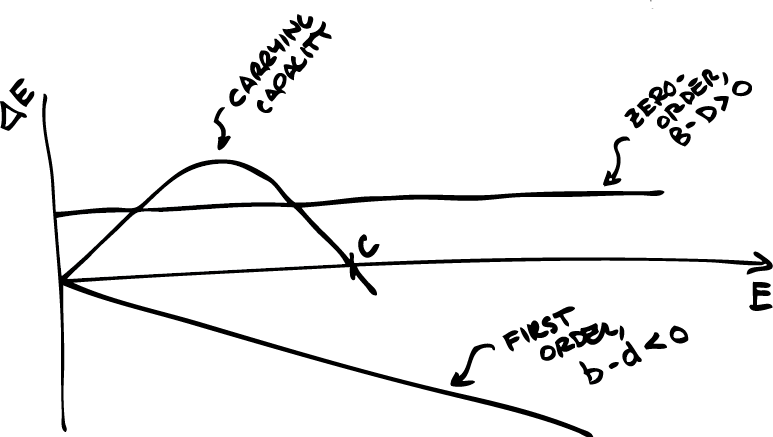 CARRYING
CAPACITY
ΔE
ZERO-
ORDER,
B-D>0
C
E
FIRST
ORDER,
b-d<0